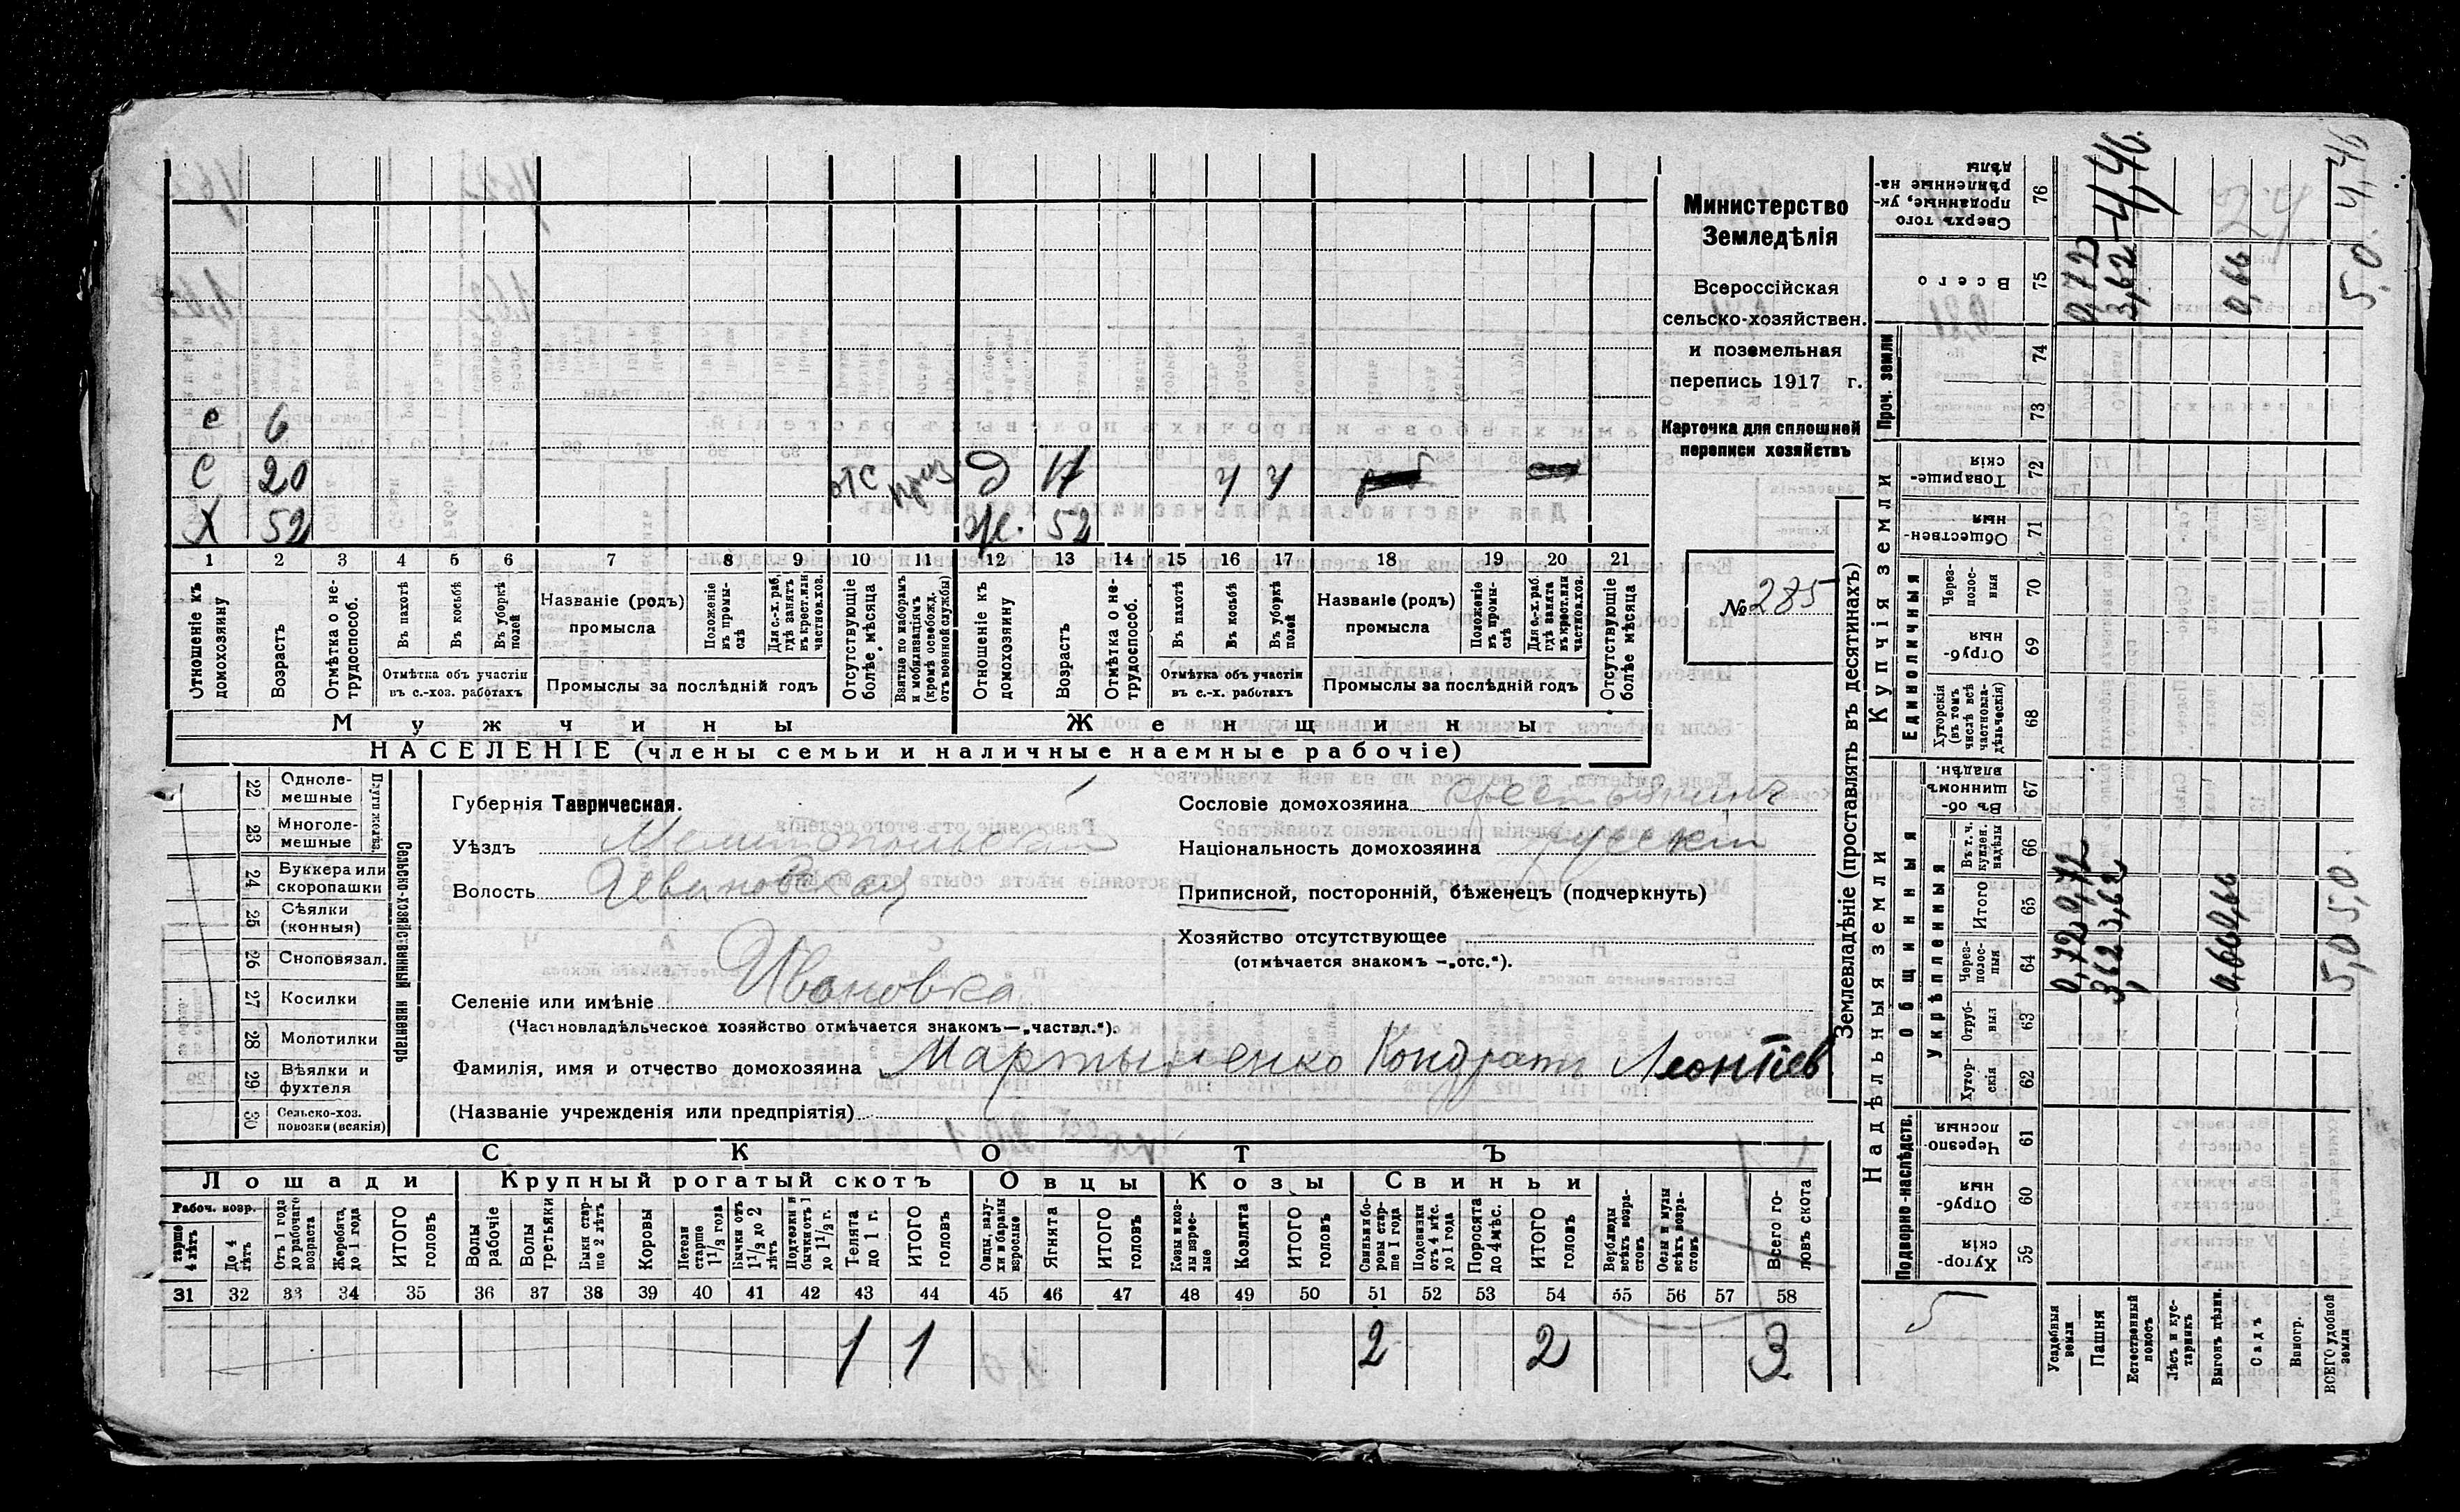 Министерство
Земледѣлія
Всероссійская
сельско-хозяйствен.
и поземельная
перепись 1917 г.
Карточка для сплошной
переписи хозяйствъ
№ 285
с 6
С 20 отс приз Д 17 ч ч
Х 52 ж. 52
1 2 3 4 5 6 7 8 9 10 11 12 13 14 15 16 17 18 19 20 21
Отношеніе къ домохозяину
Возрастъ
Отмѣтка о не-трудоспособ.
Въ пахотѣ
Въ косьбѣ
Въ уборкѣ полей
Отмѣтка объ участіи въ с.-хоз. работахъ
Названіе (родъ) промысла
Положеніе въ промы-слѣ
Для с.-х. раб. гдѣ занятъ въ крест. или частнов. хоз.
Промыслы за послѣдній годъ
Отсутствующіе болѣе мѣсяца
Взятые по наборамъ и мобилизаціямъ (кромѣ освобожд. отъ военной службы)
Отношеніе къ домохозяину
Возрастъ
Отмѣтка о не-трудоспособ.
Въ пахотѣ
Въ косьбѣ
Въ уборкѣ полей
Отмѣтка объ участіи въ с.-х. работахъ
Названіе (родъ) промысла
Положеніе въ промы-слѣ
Для с.-х. раб. гдѣ занята въ крест. или частнов. хоз.
Промыслы за послѣдній годъ
Отсутствующіе болѣе мѣсяца
Мужчины Женщины
НАСЕЛЕНІЕ (члены семьи и наличные наемные рабочіе)
22 Одноле-мешные
23 Многоле-мешные
24 Буккера или скоропашки
25 Сѣялки (конныя)
26 Сноповязал.
27 Косилки
28 Молотилки
29 Вѣялки и фухтеля
30 Сельско-хоз. повозки (всякія)
Сельско-хозяйственный инвентарь
Губернія Таврическая.
Уѣздъ Мелитопольскій
Волость Ивановская
Селеніе или имѣніе Ивановка
(Частновладѣльческое хозяйство отмѣчается знакомъ—„частвл.“).
Фамилія, имя и отчество домохозяина Мартыненко Кондратъ Леонтіев
(Названіе учрежденія или предпріятія)
Сословіе домохозяина крестьянинъ
Національность домохозяина русскій
Приписной, посторонній, бѣженецъ (подчеркнуть)
Хозяйство отсутствующее
(отмѣчается знакомъ —„отс.“).
СКОТЪ
Лошади Крупный рогатый скотъ Овцы Козы Свиньи
Рабоч. возр.
старше 4 лѣтъ
До 4 лѣтъ
Отъ 1 года до рабочаго возраста
Жеребята, до 1 года
ИТОГО головъ
Волы рабочіе
Волы третьяки
Быки стар-ше 2 лѣтъ
Коровы
Нетели старше 1 1/2 года
Бычки отъ 1 1/2 до 2 лѣтъ
Подтелки и бычки отъ 1 до 1 1/2 г.
Телята до 1 г.
ИТОГО головъ
Овцы, валу-хи и бараны взрослые
Ягнята
ИТОГО головъ
Козы и коз-лы взрос-лые
Козлята
ИТОГО головъ
Свиньи и бо-ровы стар-ше 1 года
Подсвинки отъ 4 мѣс. до 1 года
Поросята до 4 мѣс.
ИТОГО головъ
Верблюды всѣхъ возра-стовъ
Ослы и мулы всѣхъ возра-стовъ
Всего го-ловъ скота
31 32 33 34 35 36 37 38 39 40 41 42 43 44 45 46 47 48 49 50 51 52 53 54 55 56 57 58
1 1 2 2 3
Землевладѣніе (проставлять въ десятинахъ)
Надѣльныя земли Купчія земли Проч. земли
Подворно-наслѣдств. Общинныя Укрѣпленныя Единоличныя
Хутор-скія 59
Отруб-ныя 60
Черезпо-лосныя 61
Хутор-скія 62
Отруб-ныя 63
Через-полос-ныя 64
Итого 65
Въ т. ч. куплен. надѣлы 66
Въ об-щинномъ владѣн. 67
Хуторскія (въ томъ числѣ всѣ частновла-дѣльческія) 68
Отруб-ныя 69
Через-полос-ныя 70
Обществен-ныя 71
Товарище-скія 72
73
74
Всего 75
Сверхъ того проданные, ук-рѣпленные на-дѣлы 76
5
Усадебныя земли 0,72 0,72 0,72
Пашня 3,62 3,62 3,62 4,46
Естественный покосъ
Лѣсъ и кус-тарникъ
Выгонъ цѣлин. 0,66 0,66 0,66
Садъ
Виногр.
ВСЕГО удобной земли 5,0 5,0 5,0 4,46